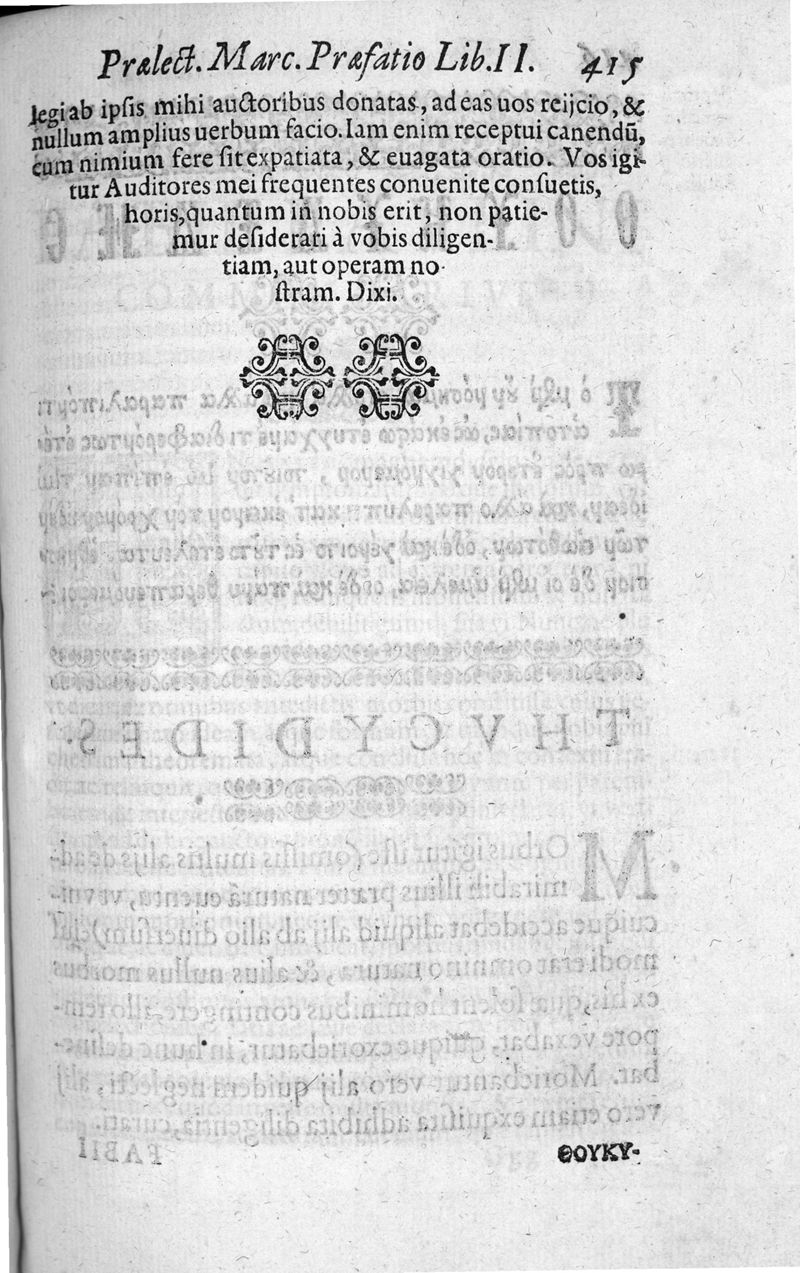 Prælect. Marc. Præfatio Lib. II. 415
legi ab ipsis mihi auctoribus donatas, ad eas uos reijcio, &
nullum amplius uerbum facio. Iam enim receptui canendũ,
cum nimium fere sit expatiata, & euagata oratio. Vos igi-
tur Auditores mei frequentes conuenite consuetis,
horis, quantum in nobis erit, non patie-
mur desiderari à vobis diligen-
tiam, aut operam no-
stram. Dixi.
ΘΟΥΚΥ-